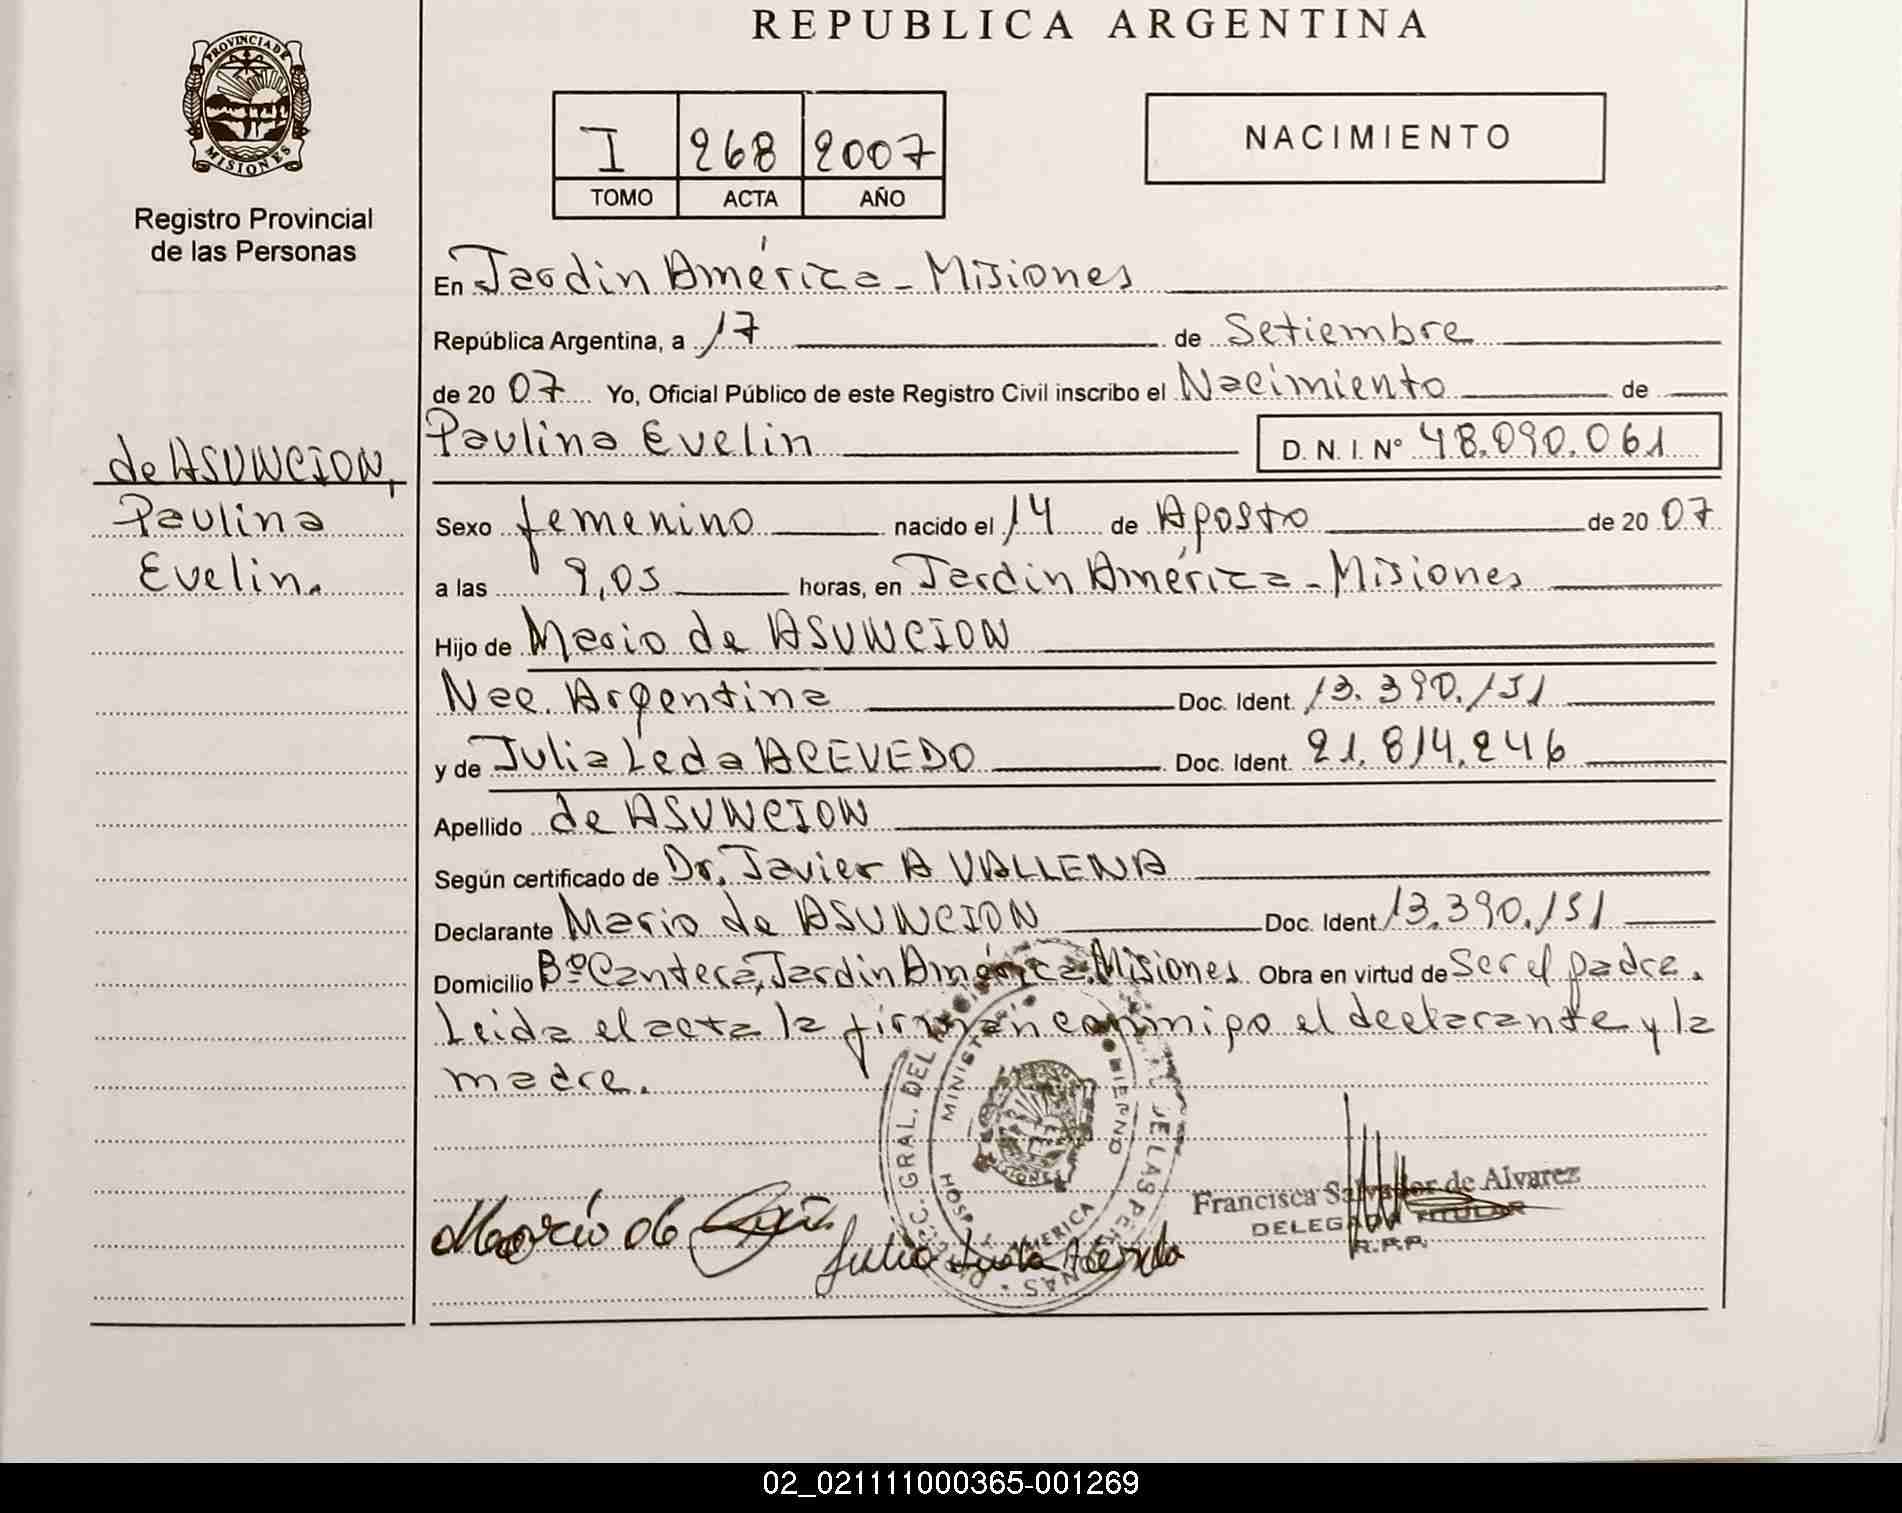 REPUBLICA ARGENTINA
PROVINCIA DE
MISIONES
Registro Provincial
de las Personas
I 268 2007
TOMO ACTA AÑO
NACIMIENTO
En Jardin América - Misiones
República Argentina, a 17 de Setiembre
de 2007 Yo, Oficial Público de este Registro Civil inscribo el Nacimiento de
Paulina Evelin D. N. I. Nº 48.090.061
de ASUNCION,
Paulina
Evelin.
Sexo femenino nacido el 14 de Agosto de 2007
a las 9,05 horas, en Jardin América - Misiones
Hijo de Mario de ASUNCION
Nac. Argentina Doc. Ident. 13.390.151
y de Julia Leda ACEVEDO Doc. Ident. 21.814.246
Apellido de ASUNCION
Según certificado de Dr. Javier A VALLENA
Declarante Mario de ASUNCION Doc. Ident 13.390.151
Domicilio Bº Cantera, Jardin América Misiones Obra en virtud de Ser el padre.
Leida el acta la firman conmigo el declarante y la
madre.
GRAL. DEL
MINISTERIO
DE LAS PERSONAS
MISIONES
Mario de
Francisca Salvador de Alvarez
DELEGADA TITULAR
R.P.P.
02_021111000365-001269